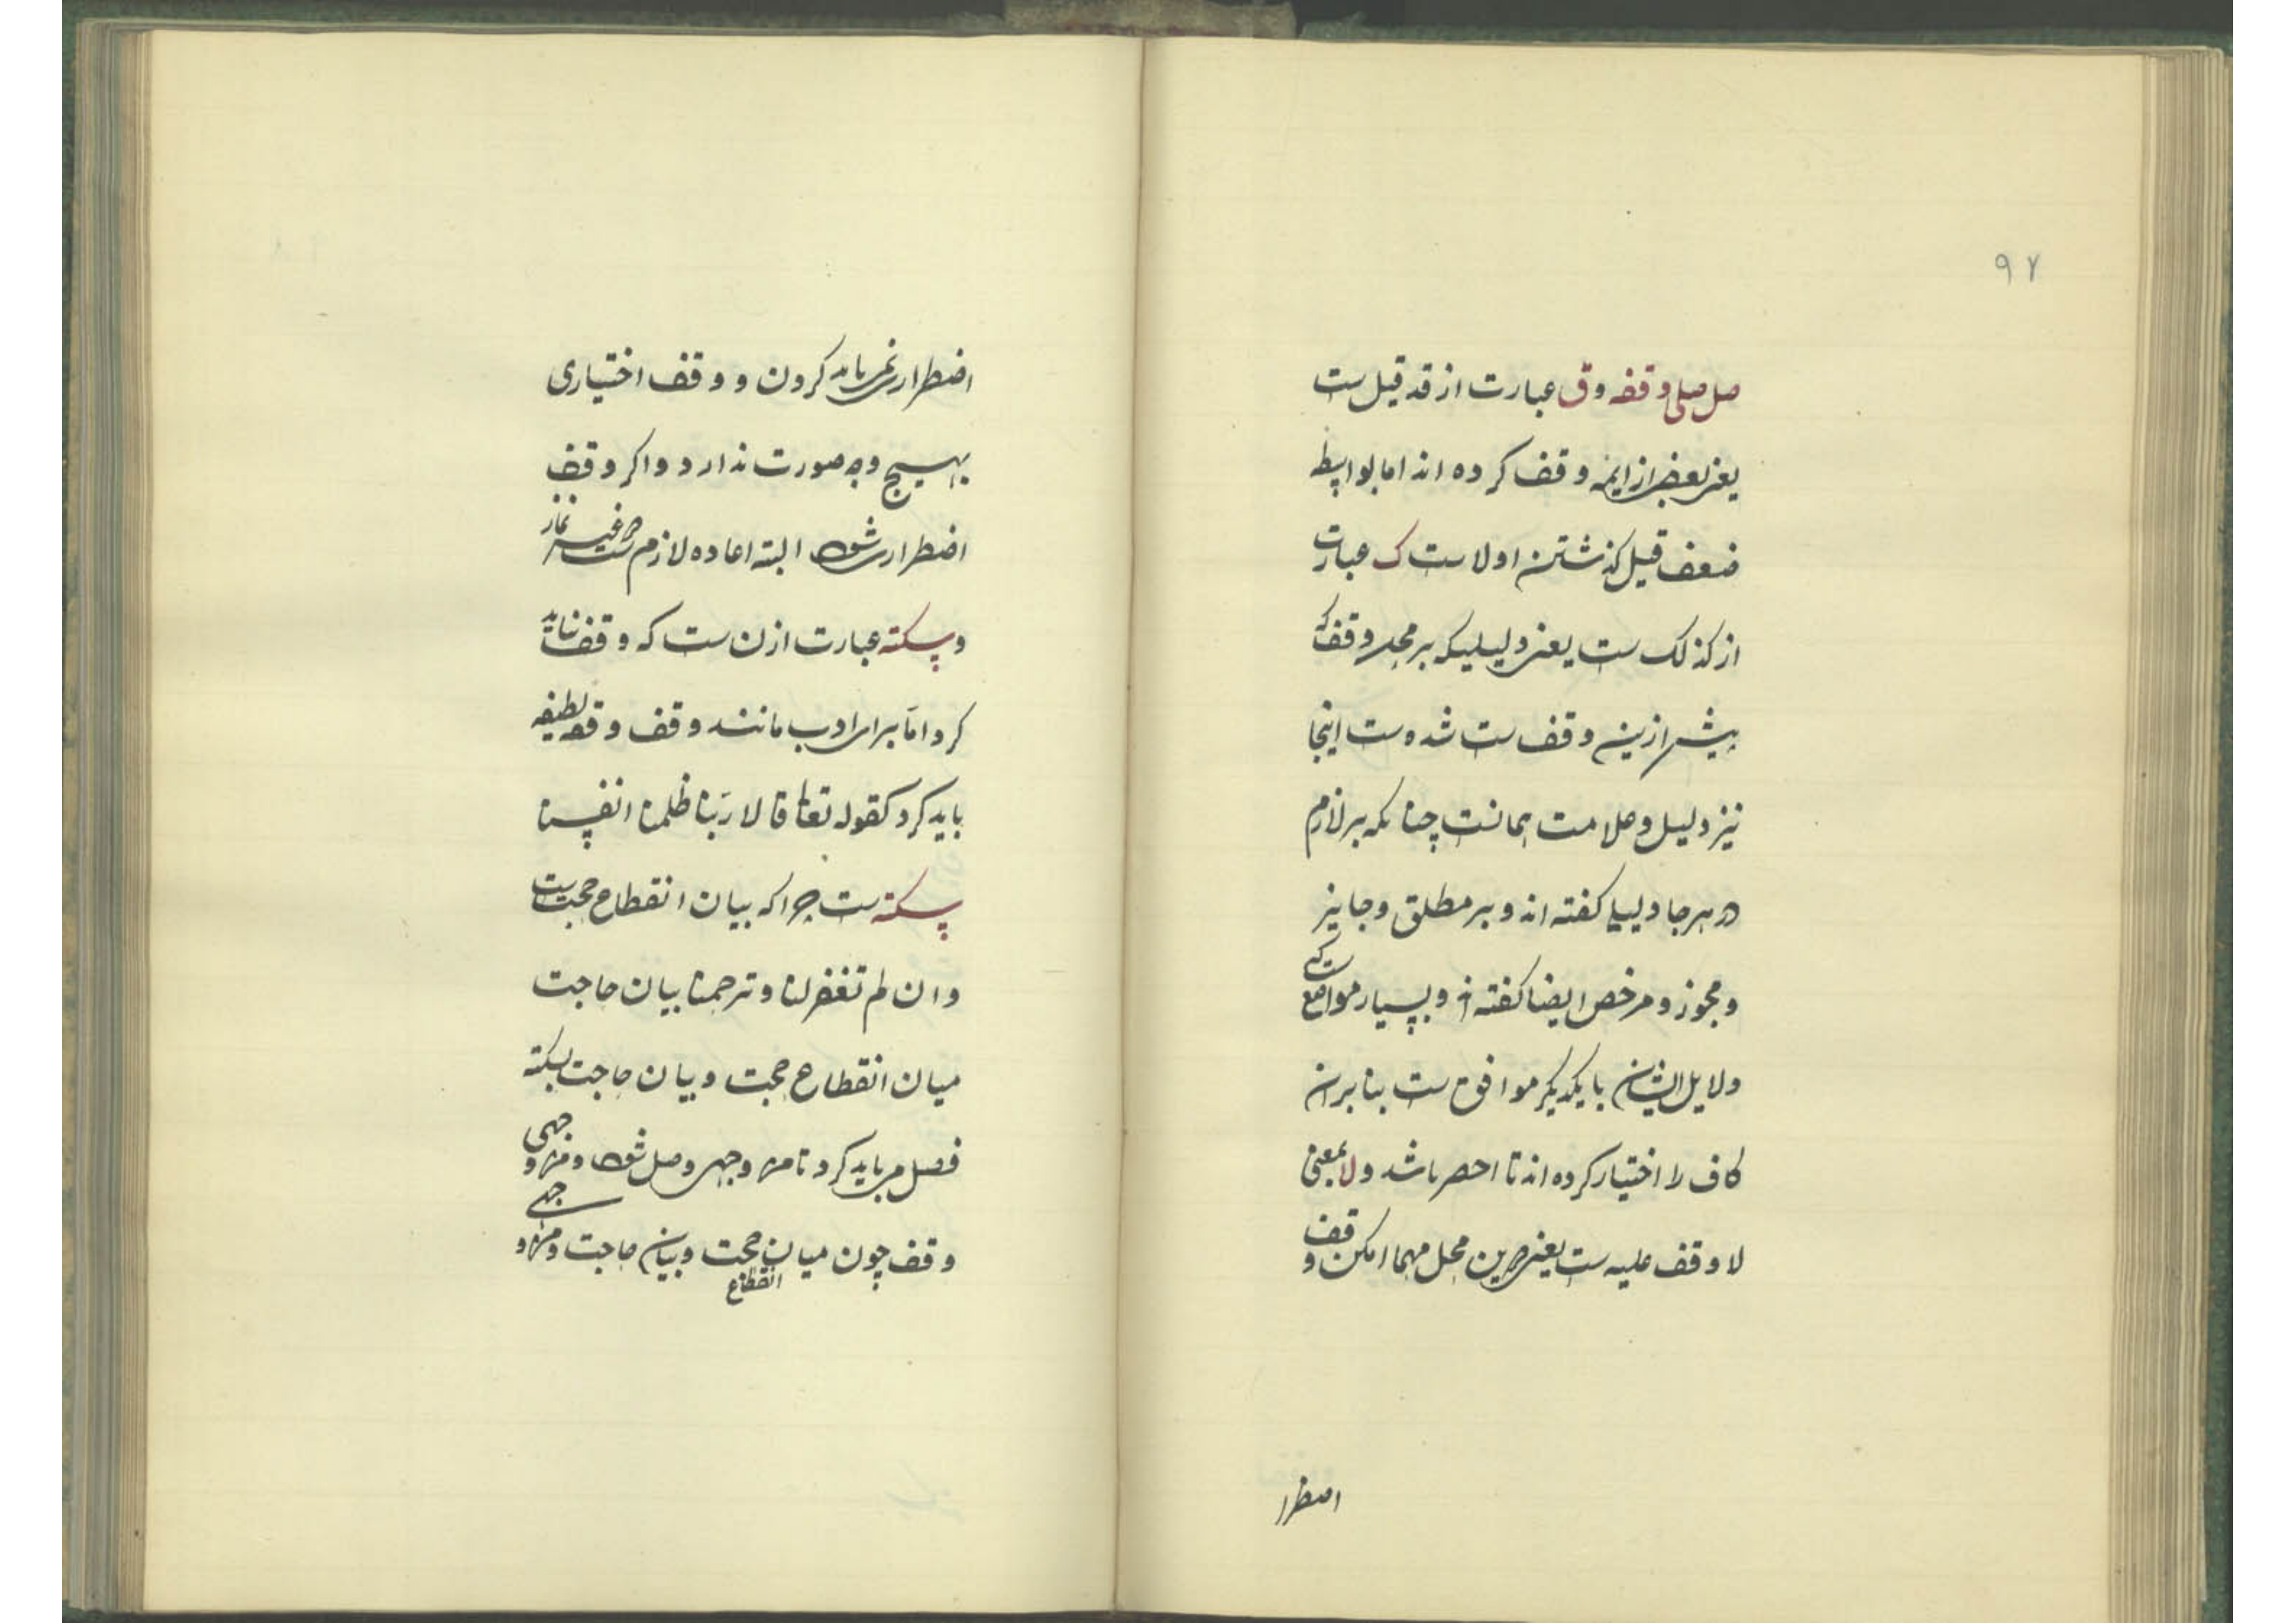 ۹۷
صل صلی وقفه وق عبارت از قد قیل ست
یعنی بعضی از ایمه وقف کرده اند اما بواسطه
ضعف قیل گذشتن اولا ست ک عبارت
از کذلک ست یعنی دلیلیکه بر محل وقف که
پیش ازین وقف ست شده ست اینجا
نیز دلیل و علامت همانست چنانکه بر لازم
در هر جا دلیل گفته اند و بر مطلق و جایز
و مجوز و مرخص ایضا گفته اند و بسیار مواضع ست که
دلایل ایشان با یکدیگر موافق ست بنابران
کاف را اختیار کرده اند تا احصر باشد و لا بمعنی
لا وقف علیه ست یعنی درین محل مهما امکن وقف
اضطرا
اضطراری نمی باید کردن و وقف اختیاری
بهیچ وجه صورت ندارد و اگر وقف
اضطراری شود البته اعاده لازم ست در غیر نماز
و سکته عبارت از آن ست که وقف نباید
کرد اما برای ادب مانند وقف وقفه لطیفه
باید کرد کقوله تعالی قالا ربنا ظلمنا انفسنا
سکته ست چرا که بیان انقطاع حجت ست
و ان لم تغفر لنا و ترحمنا بیان حاجت
میان انقطاع حجت و بیان حاجت بسکته
فصل می باید کرد تا من وجهی وصل شود و من وجهی
وقف چون میان انقطاع حجت و بیان حاجت و من وجهی